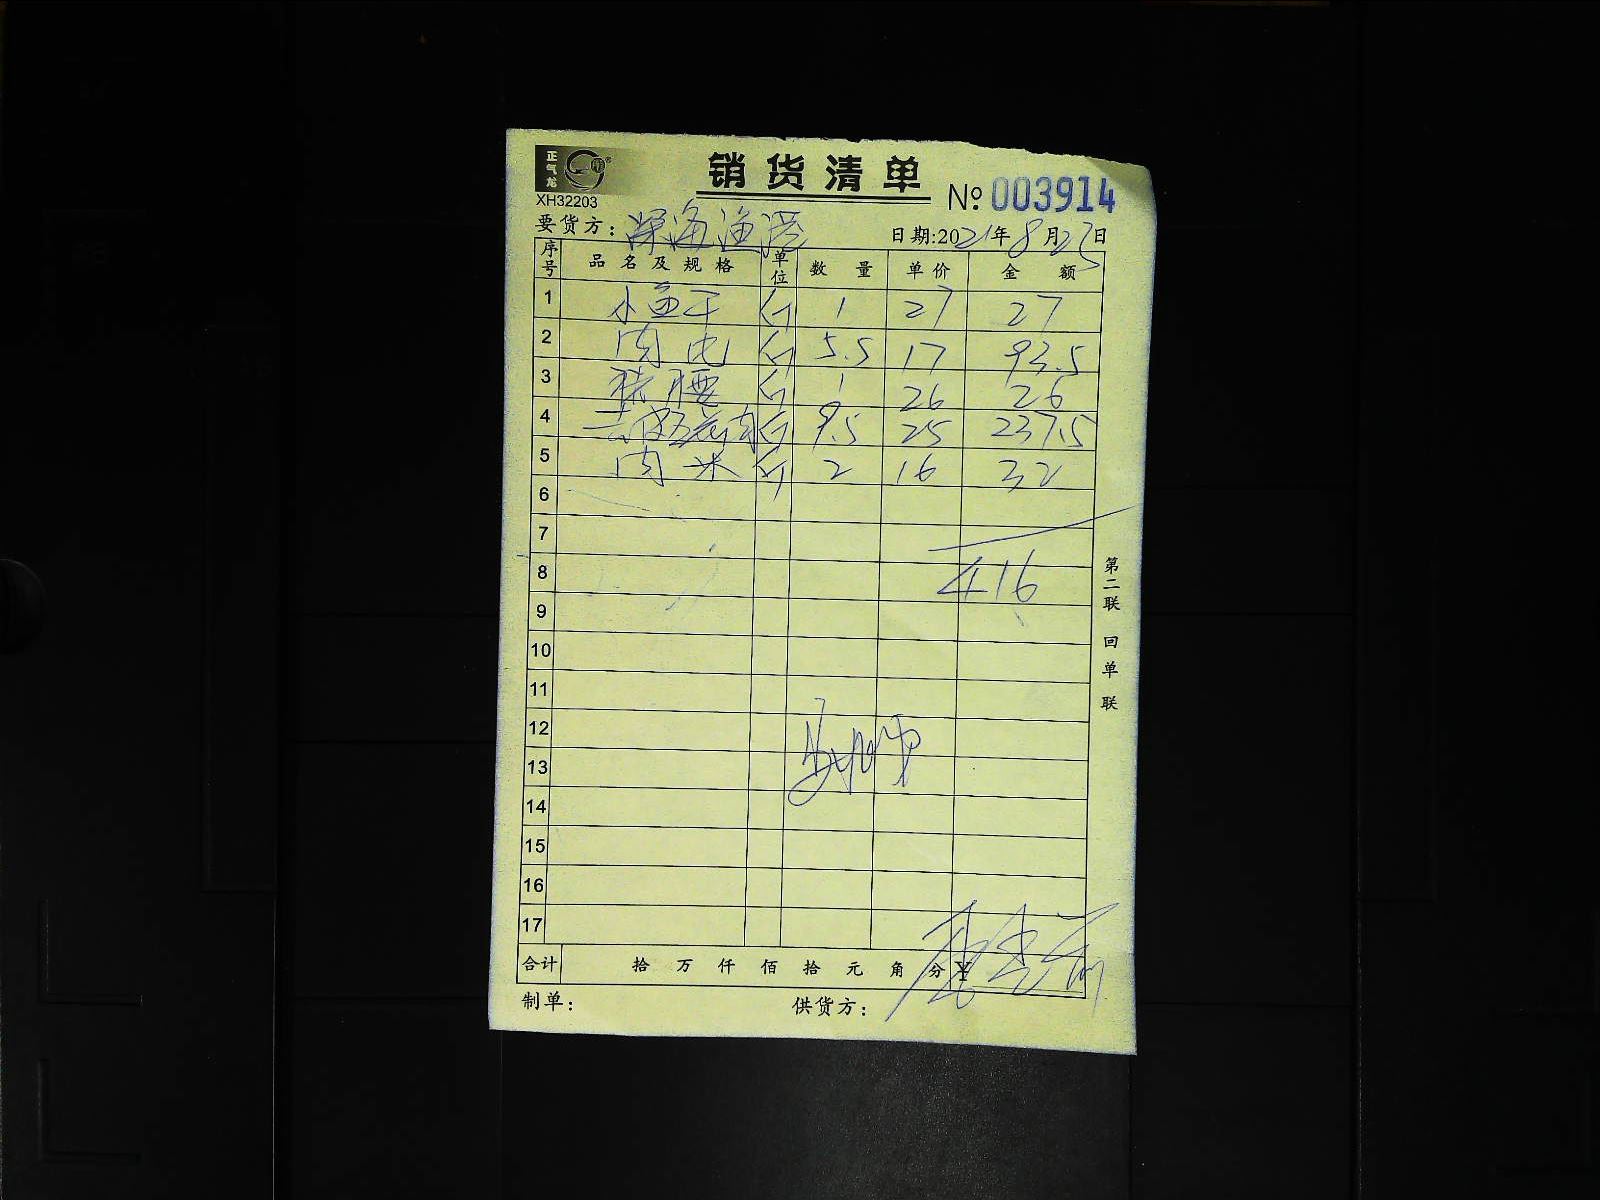 正气龙
XH32203
销货清单
№ 003914
要货方：深海渔港
日期:2021年8月25日
序号 品名及规格 单位 数量 单价 金额
1 小鱼干 斤 1 27 27
2 肉 斤 5.5 17 93.5
3 猪腰 斤 1 26 26
4 去皮五花肉 斤 9.5 25 237.5
5 肉米 斤 2 16 32
6
7
8 416
9
10
11
12
13
14
15
16
17
合计 拾 万 仟 佰 拾 元 角 分 ¥
制单： 供货方：
第二联 回单联